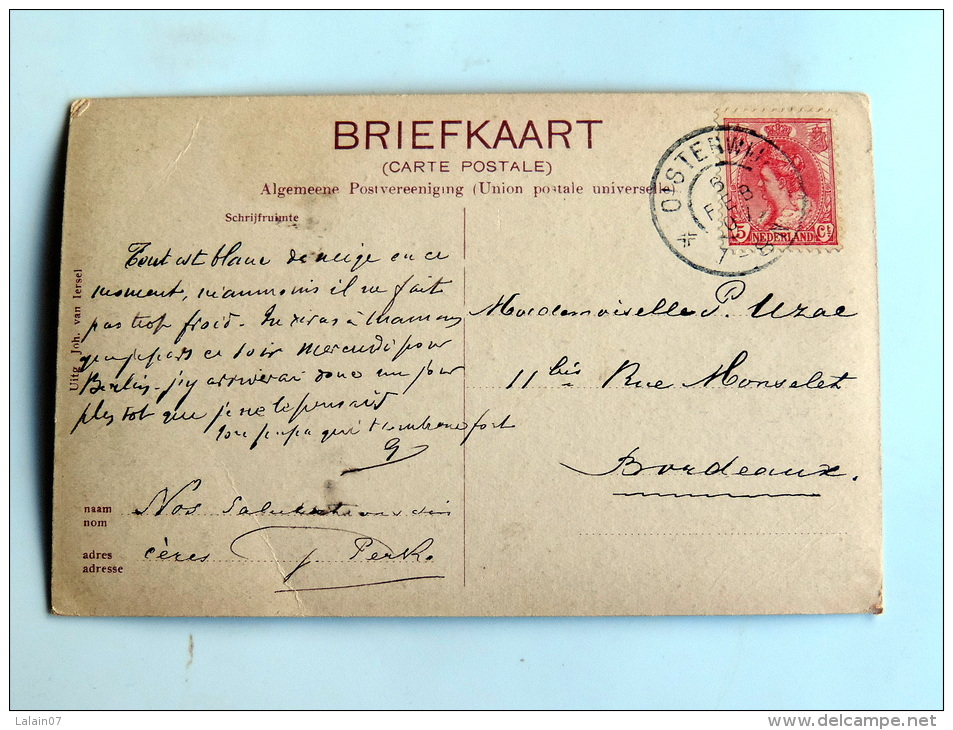 BRIEFKAART
(CARTE POSTALE)
Algemeene Postvereeniging (Union postale universelle)
OISTERWIJK
5 Ct
NEDERLAND
Schrijfruimte
Tout est blanc de neige en ce
moment, néanmoins il ne fait
pas trop froid. Tu diras à maman
que je pars ce soir mercredi pour
Berlin. j'y arriverai donc un jour
plus tôt que je ne le pensais
ton papa qui t'embrasse fort
G
Nos salutations sin
cères J. Perk
naam
nom
adres
adresse
Uitg Joh. van Iersel
Mademoiselle P. Uzac
11 bis Rue Monselet
Bordeaux.
Lalain07
www.delcampe.net